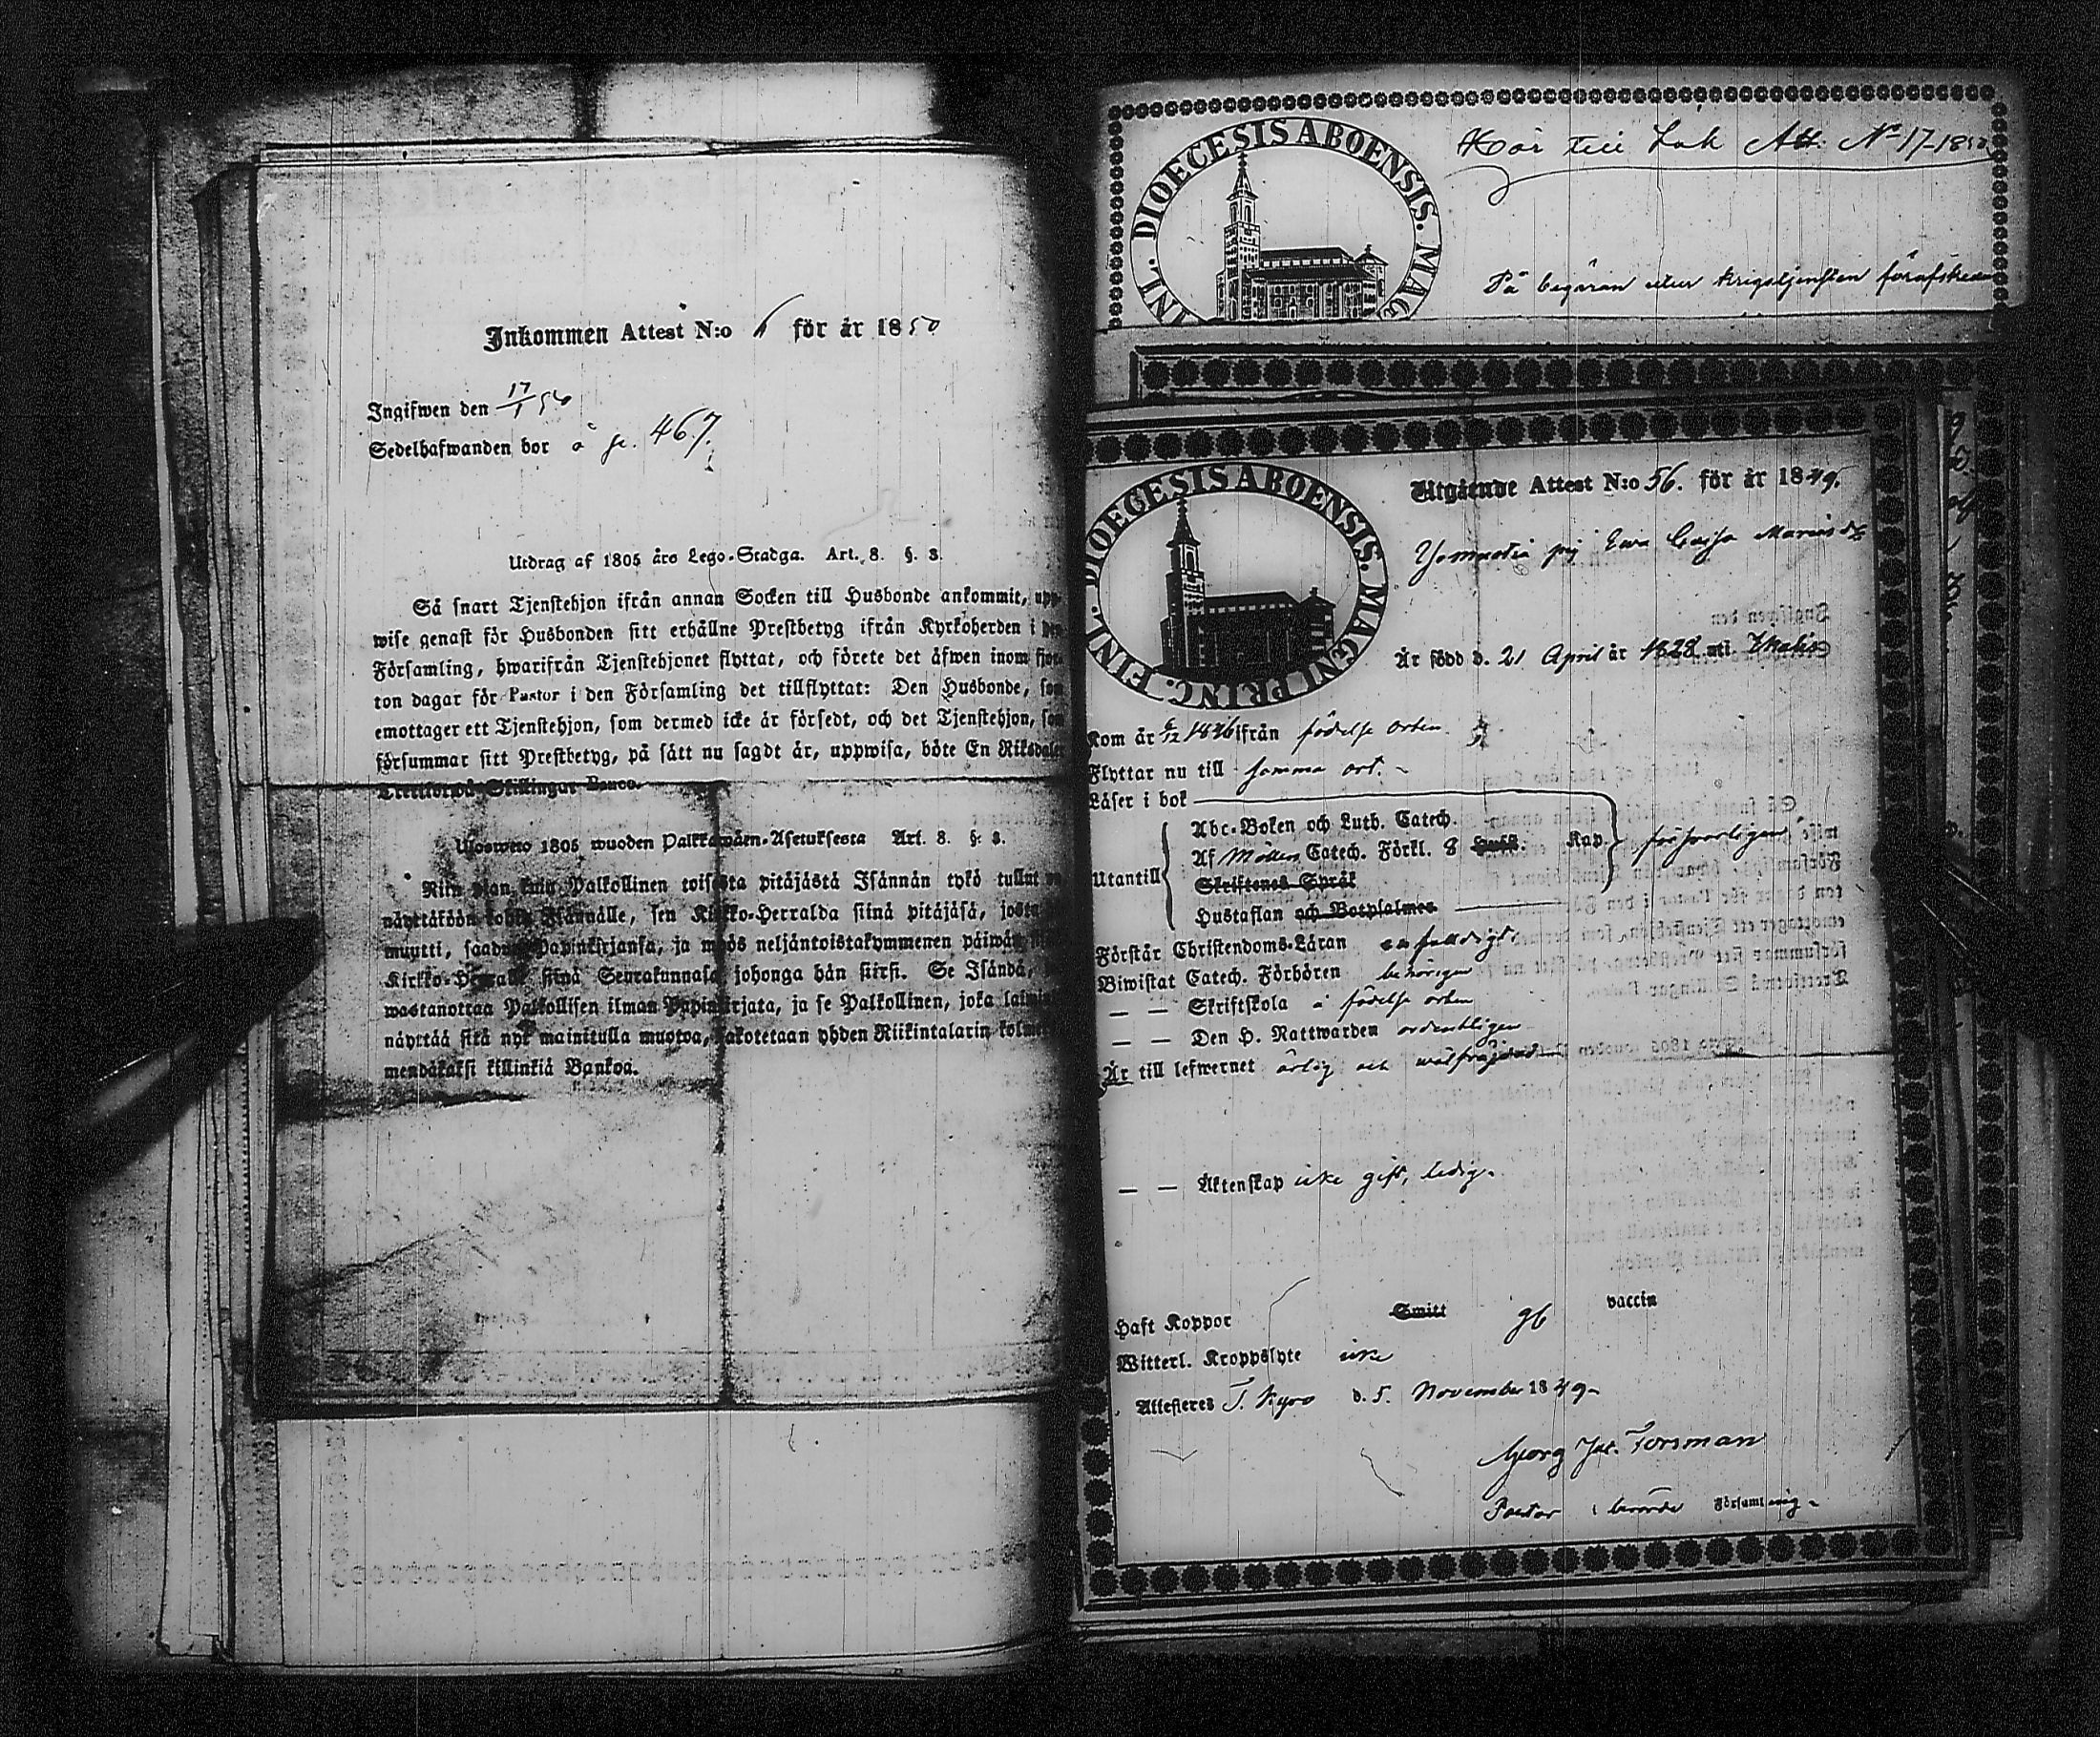 Inkommen Attest N:o 6 för år 1850
Ingifwen den 17/1 50
Sedelhafwanden bor å p. 467.
Utdrag af 1805 års Lego-Stadga. Art. 8. §. 3.
Så snart Tjenstehjon ifrån annan Socken till Husbonde ankommit, upp-
wise genast för Husbonden sitt erhållne Prestbetyg ifrån Kyrkoherden i den
Församling, hwarifrån Tjenstehjonet flyttat, och förete det äfwen inom fjor-
ton dagar för Pastor i den Församling det tillflyttat: Den Husbonde, som
emottager ett Tjenstehjon, som dermed icke är försedt, och det Tjenstehjon, som
försummar sitt Prestbetyg, på sätt nu sagdt är, uppwisa, böte En Riksdaler
Trettiotwå Skillingar Banco.
Uloswето 1805 wuoden Palkkawäen-Asetuksesta Art. 8. §. 3.
Niin pian kuin Palkollinen toisesta pitäjästä Isännän tykö tullut
näyttäköön kohta Isännälle, sen Kirkko-Herralda siinä pitäjäsä, josta
muutti, saadun Papinkirjansa, ja myös neljäntoistakymmenen päiwän
Kirkko-Herralle siinä Seurakunnasa johonga hän siirsi. Se Isändä,
wastanottaa Palkollisen ilman Papinkirjata, ja se Palkollinen, joka
näyttää sitä nyt mainitulla muotoa, sakotetaan yhden Riikintalarin kolme
mendäkaksi killinkiä Bankoa.
DIOECESIS ABOENSIS. MAG
INL.
Hör till Ink Att. No 17-1850
På begäran utur krigstjensten
DIOECESIS ABOENSIS. MAGNI PRINC. FINL.
Utgående Attest N:o 56. för år 1849.
pig Ewa Cajsa
Är född d. 21 April år 1828 uti Ikalis
Kom år 1846 ifrån födelse orten
Flyttar nu till samma ort.
Läser i bok
Utantill
Abc-Boken och Luth. Catech.
Af Möllers Catech. Förkl. 8 Hufst. Kap. försvarligen
Skriftenes Språk
Hustaflan och Botpsalmer
Förstår Christendoms-Läran enfaldigt
Biwistat Catech. Förhören behörigen
— — Skriftskola i födelse orten
— — Den H. Nattwarden ordentligen
Är till lefwernet ärlig och wälfräjdad
— — Äktenskap icke gift, ledig.
Haft Koppor Smitt gt vaccin
Witterl. Kroppslyte icke
Attesteres T. Kyro d. 5. November 1849
Georg Jac. Forsman
Pastor i berörde Församling